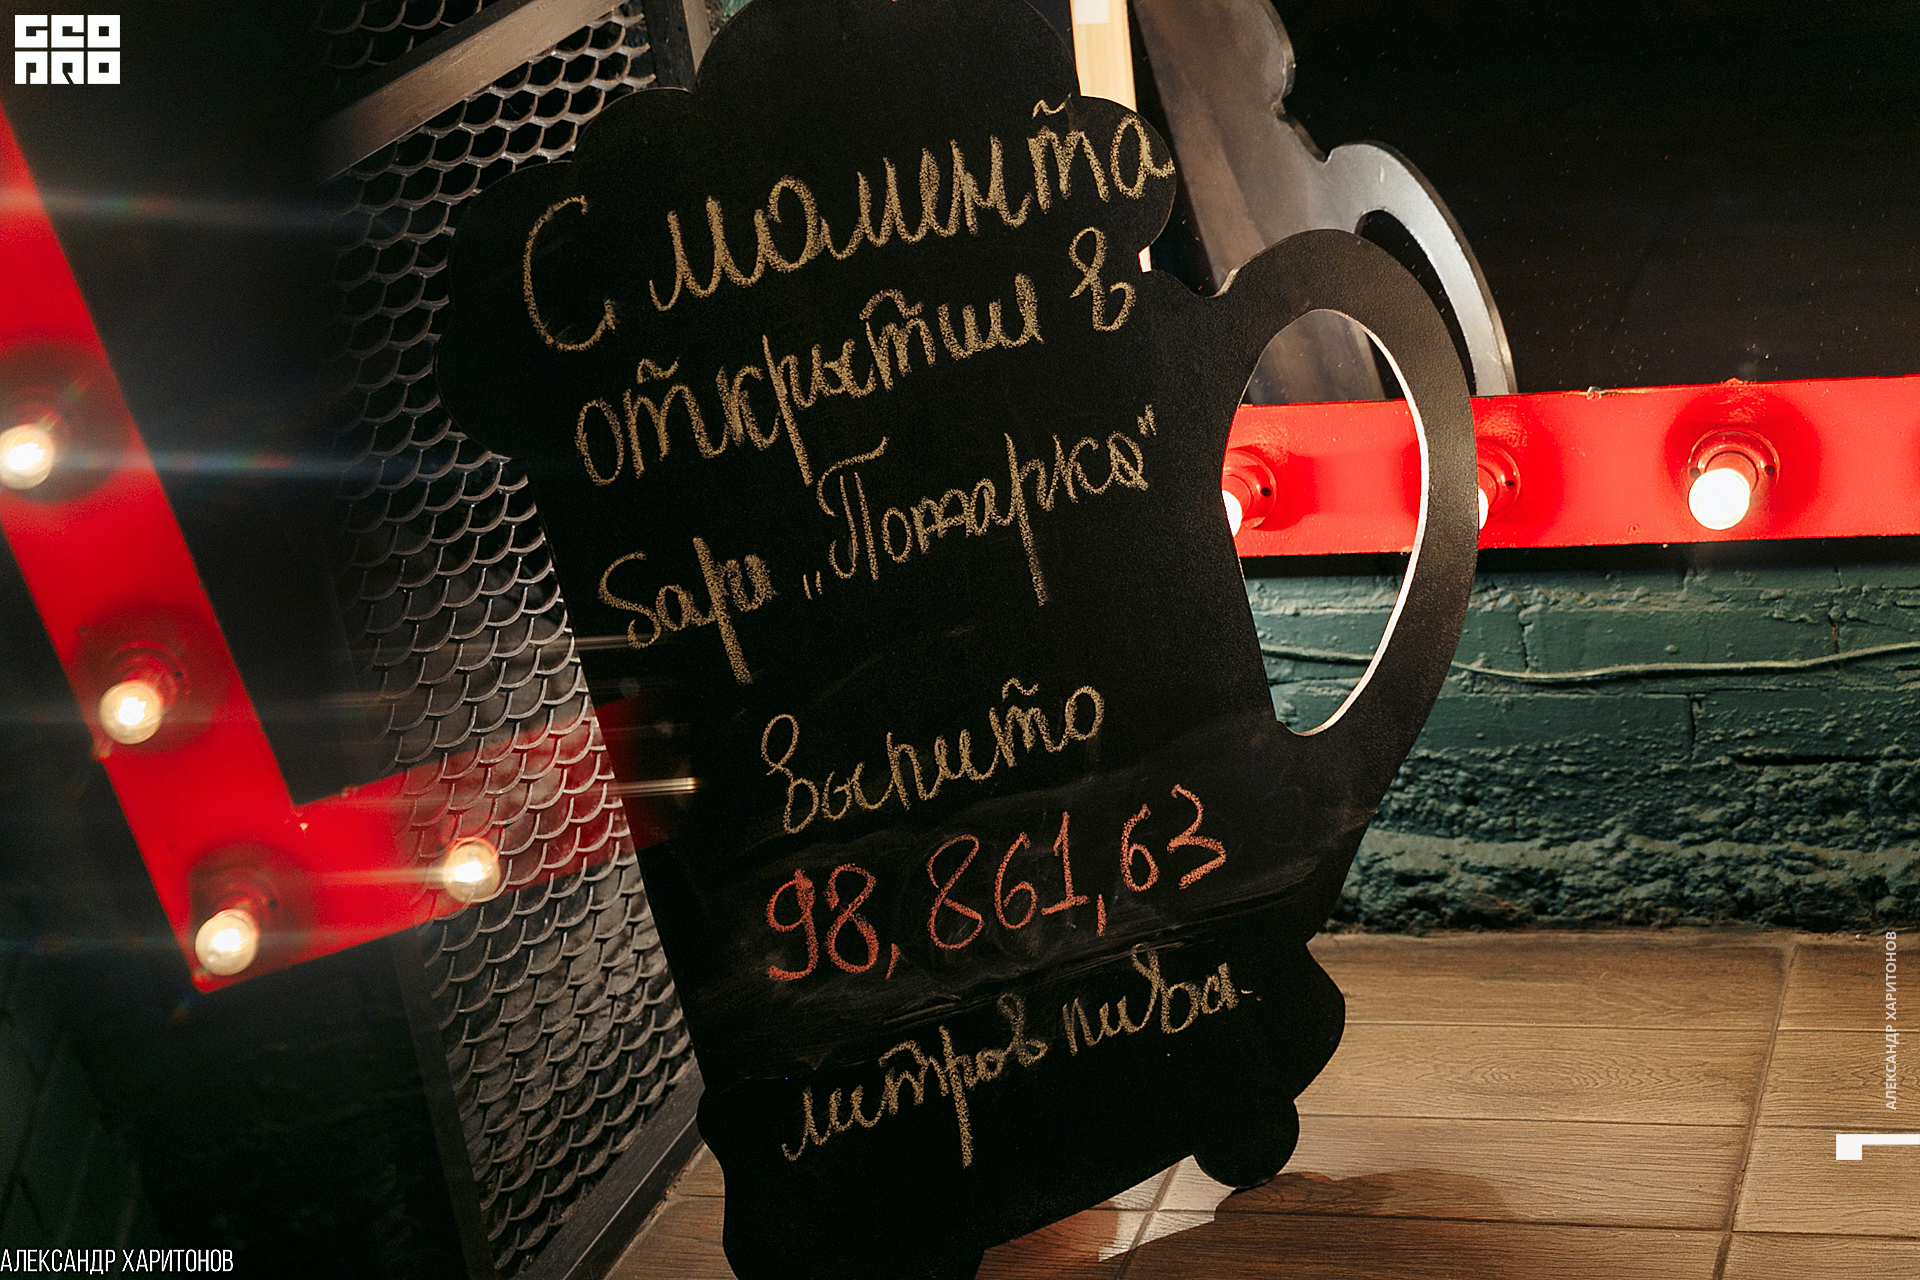 GEO
PRO
С момента
открытия в
баре „Пожарка"
выпито
98,861,63
литров пива.
АЛЕКСАНДР ХАРИТОНОВ
АЛЕКСАНДР ХАРИТОНОВ